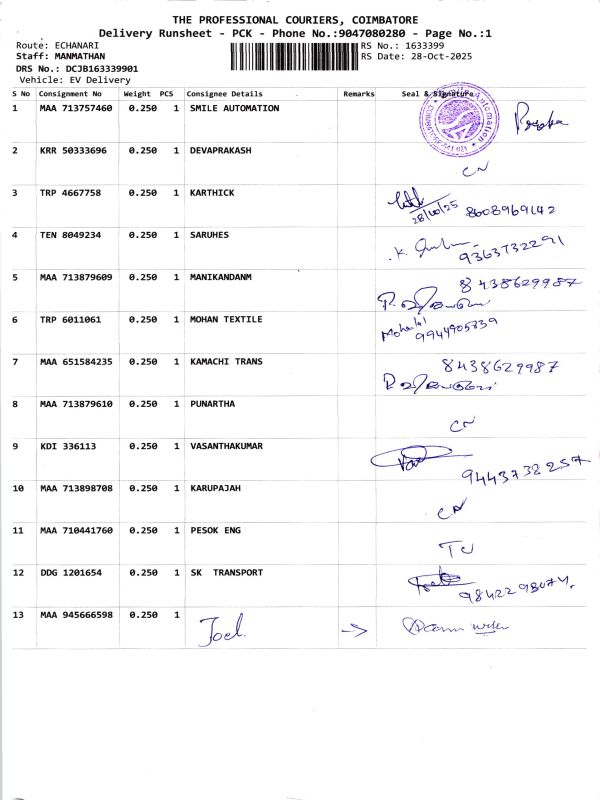 THE PROFESSIONAL COURIERS, COIMBATORE
Delivery Runsheet - PCK - Phone No.:9047080280 - Page No.:1
Route: ECHANARI RS No.: 1633399
Staff: MANMATHAN RS Date: 28-Oct-2025
DRS No.: DCJB163339901
Vehicle: EV Delivery
S No Consignment No Weight PCS Consignee Details Remarks Seal & Signature
1 MAA 713757460 0.250 1 SMILE AUTOMATION
2 KRR 50333696 0.250 1 DEVAPRAKASH CN
3 TRP 4667758 0.250 1 KARTHICK 28/10/25 8608969142
4 TEN 8049234 0.250 1 SARUHES 9363732291
5 MAA 713879609 0.250 1 MANIKANDANM 8438629987
6 TRP 6011061 0.250 1 MOHAN TEXTILE 9944905739
7 MAA 651584235 0.250 1 KAMACHI TRANS 8438629987
8 MAA 713879610 0.250 1 PUNARTHA CN
9 KDI 336113 0.250 1 VASANTHAKUMAR 9443738257
10 MAA 713898708 0.250 1 KARUPAJAH CN
11 MAA 710441760 0.250 1 PESOK ENG TC
12 DDG 1201654 0.250 1 SK TRANSPORT 9842298074
13 MAA 945666598 0.250 1 Joel. →